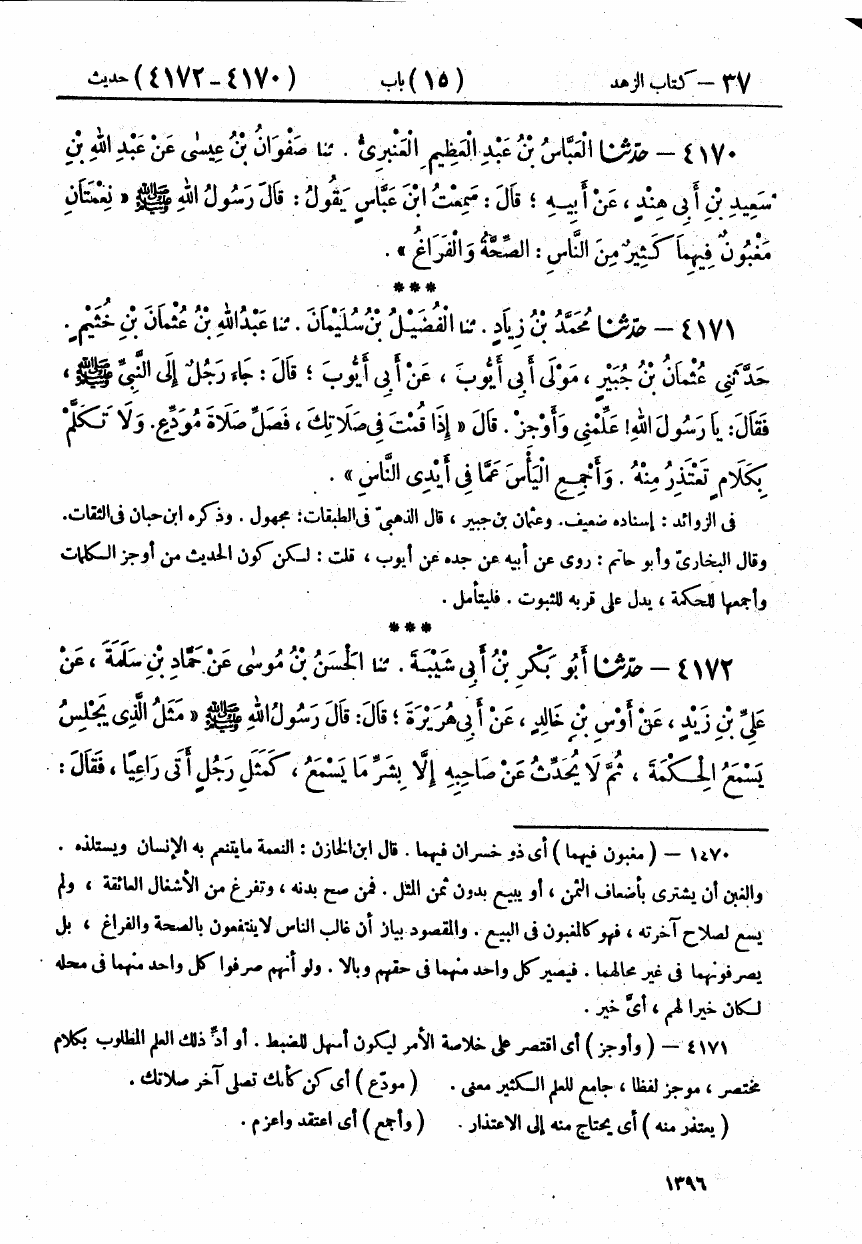 ٣٧ — كتاب الزهد (١٥) باب (٤١٧٠ – ٤١٧٢) حديث
٤١٧٠ — حدّثنا الْعَبَّاسُ بْنُ عَبْدِ الْعَظِيمِ الْعَنْبَرِيُّ . ثنا صَفْوَانُ بْنُ عِيسَى عَنْ عَبْدِ اللهِ بْنِ
سَعِيدِ بْنِ أَبِي هِنْدٍ ، عَنْ أَبِيهِ ؛ قَالَ : سَمِعْتُ ابْنَ عَبَّاسٍ يَقُولُ : قَالَ رَسُولُ اللهِ ﷺ « نِعْمَتَانِ
مَغْبُونٌ فِيهِمَا كَثِيرٌ مِنَ النَّاسِ : الصِّحَّةُ وَالْفَرَاغُ » .
***
٤١٧١ — حدّثنا مُحَمَّدُ بْنُ زِيَادٍ . ثنا الْفُضَيْلُ بْنُ سُلَيْمَانَ . ثنا عَبْدُ اللهِ بْنُ عُثْمَانَ بْنِ خُثَيْمٍ .
حَدَّثَنِي عُثْمَانُ بْنُ جُبَيْرٍ ، مَوْلَى أَبِي أَيُّوبَ ، عَنْ أَبِي أَيُّوبَ ؛ قَالَ : جَاءَ رَجُلٌ إِلَى النَّبِيِّ ﷺ ،
فَقَالَ : يَا رَسُولَ اللهِ! عَلِّمْنِي وَأَوْجِزْ . قَالَ « إِذَا قُمْتَ فِي صَلَاتِكَ ، فَصَلِّ صَلَاةَ مُوَدِّعٍ . وَلَا تَكَلَّمْ
بِكَلَامٍ تَعْتَذِرُ مِنْهُ . وَأَجْمِعِ الْيَأْسَ عَمَّا فِي أَيْدِي النَّاسِ » .
فى الزوائد : إسناده ضعيف. وعثمان بن جبير ، قال الذهبىّ فى الطبقات: مجهول . وذكره ابن حبان فى الثقات.
وقال البخارىّ وأبو حاتم : روى عن أبيه عن جده عن أيوب ، قلت : لكن كون الحديث من أوجز الكلمات
وأجمعها للحكمة ، يدل على قربه للثبوت . فليتأمل .
***
٤١٧٢ — حدّثنا أَبُو بَكْرِ بْنُ أَبِي شَيْبَةَ . ثنا الْحَسَنُ بْنُ مُوسَى عَنْ حَمَّادِ بْنِ سَلَمَةَ ، عَنْ
عَلِيِّ بْنِ زَيْدٍ ، عَنْ أَوْسِ بْنِ خَالِدٍ ، عَنْ أَبِي هُرَيْرَةَ ؛ قَالَ: قَالَ رَسُولُ اللهِ ﷺ « مَثَلُ الَّذِي يَجْلِسُ
يَسْمَعُ الْحِكْمَةَ ، ثُمَّ لَا يُحَدِّثُ عَنْ صَاحِبِهِ إِلَّا بِشَرِّ مَا يَسْمَعُ ، كَمَثَلِ رَجُلٍ أَتَى رَاعِيًا ، فَقَالَ :
١٤٧٠ — ( مغبون فيهما ) أى ذو خسران فيهما . قال ابن الخازن : النعمة مايتنعم به الإنسان ويستلذه .
والغبن أن يشترى بأضعاف الثمن ، أو يبيع بدون ثمن المثل . فمن صح بدنه ، وتفرغ من الأشغال العائقة ، ولم
يسع لصلاح آخرته ، فهو كالمغبون فى البيع . والمقصود بيان أن غالب الناس لاينتفعون بالصحة والفراغ ، بل
يصرفونهما فى غير محالهما . فيصير كل واحد منهما فى حقهم وبالا . ولو أنهم صرفوا كل واحد منهما فى محله
لكان خيرا لهم ، أىّ خير .
٤١٧١ — ( وأوجز ) أى اقتصر على خلاصة الأمر ليكون أسهل للضبط . أو أدِّ ذلك العلم المطلوب بكلام
مختصر ، موجز لفظا ، جامع للعلم الكثير معنى . ( مودّع ) أى كن كأنك تصلى آخر صلاتك .
( يعتذر منه ) أى يحتاج منه إلى الاعتذار . ( وأجمع ) أى اعتقد واعزم .
١٣٩٦